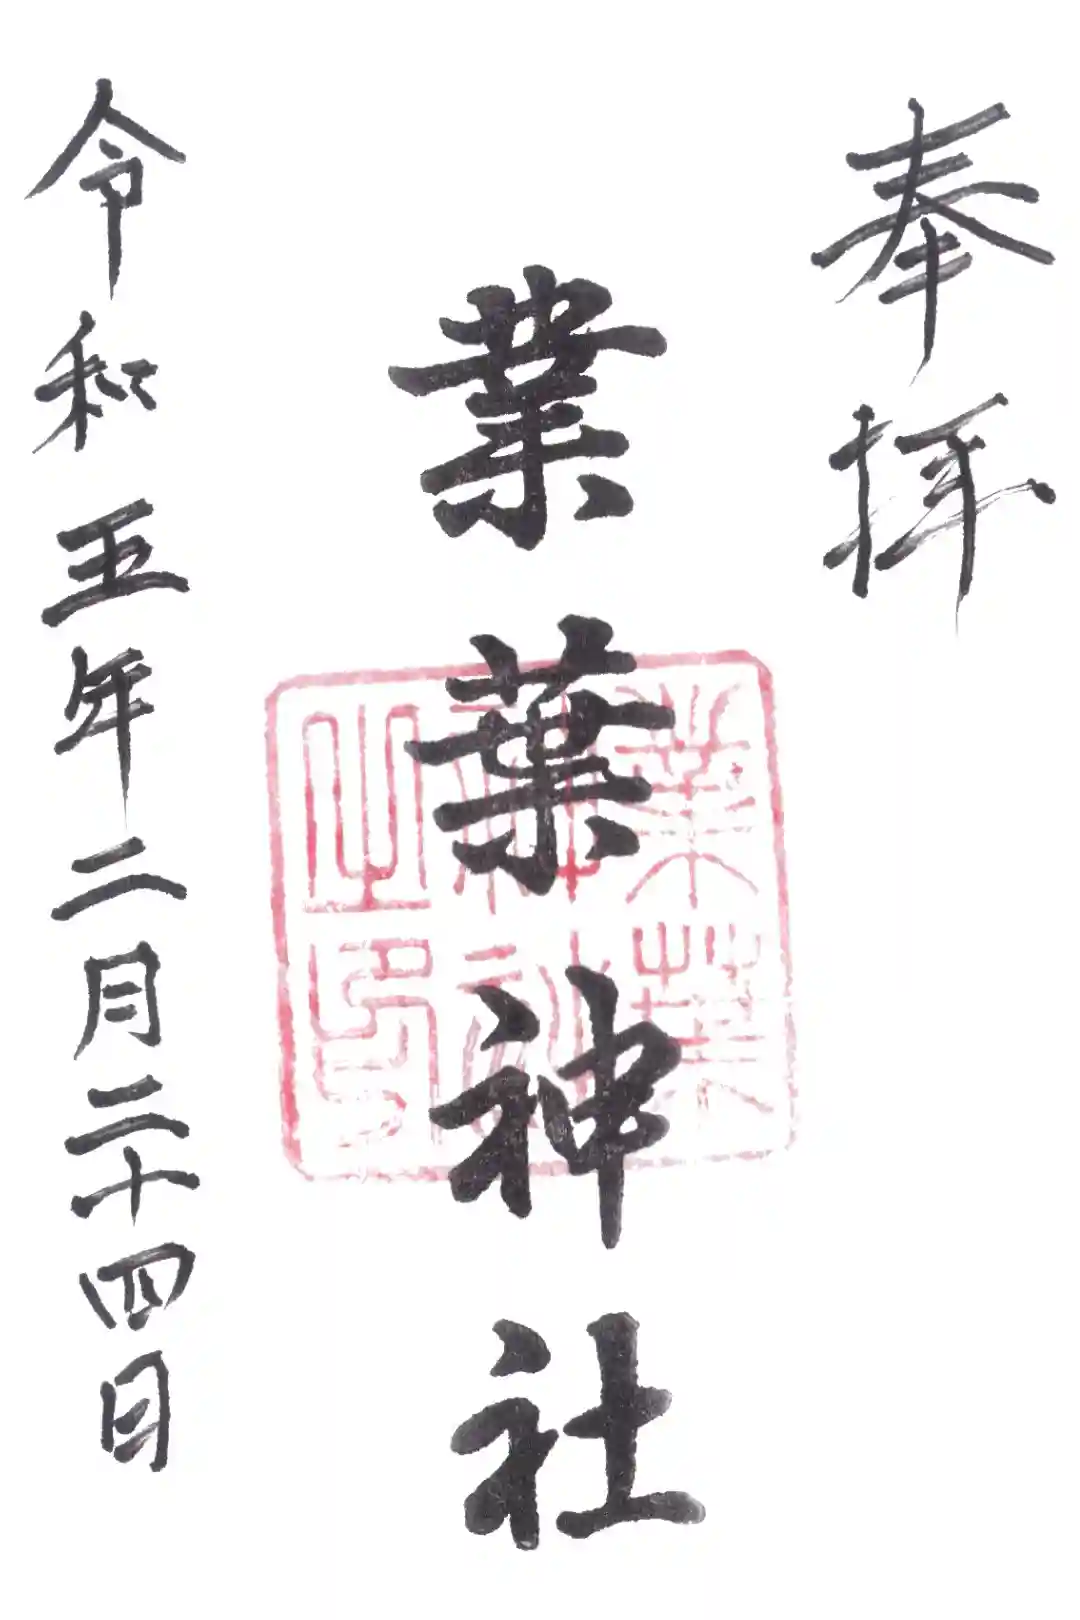 奉拝
業葉神社
業葉
神社
之印
令和五年二月二十四日